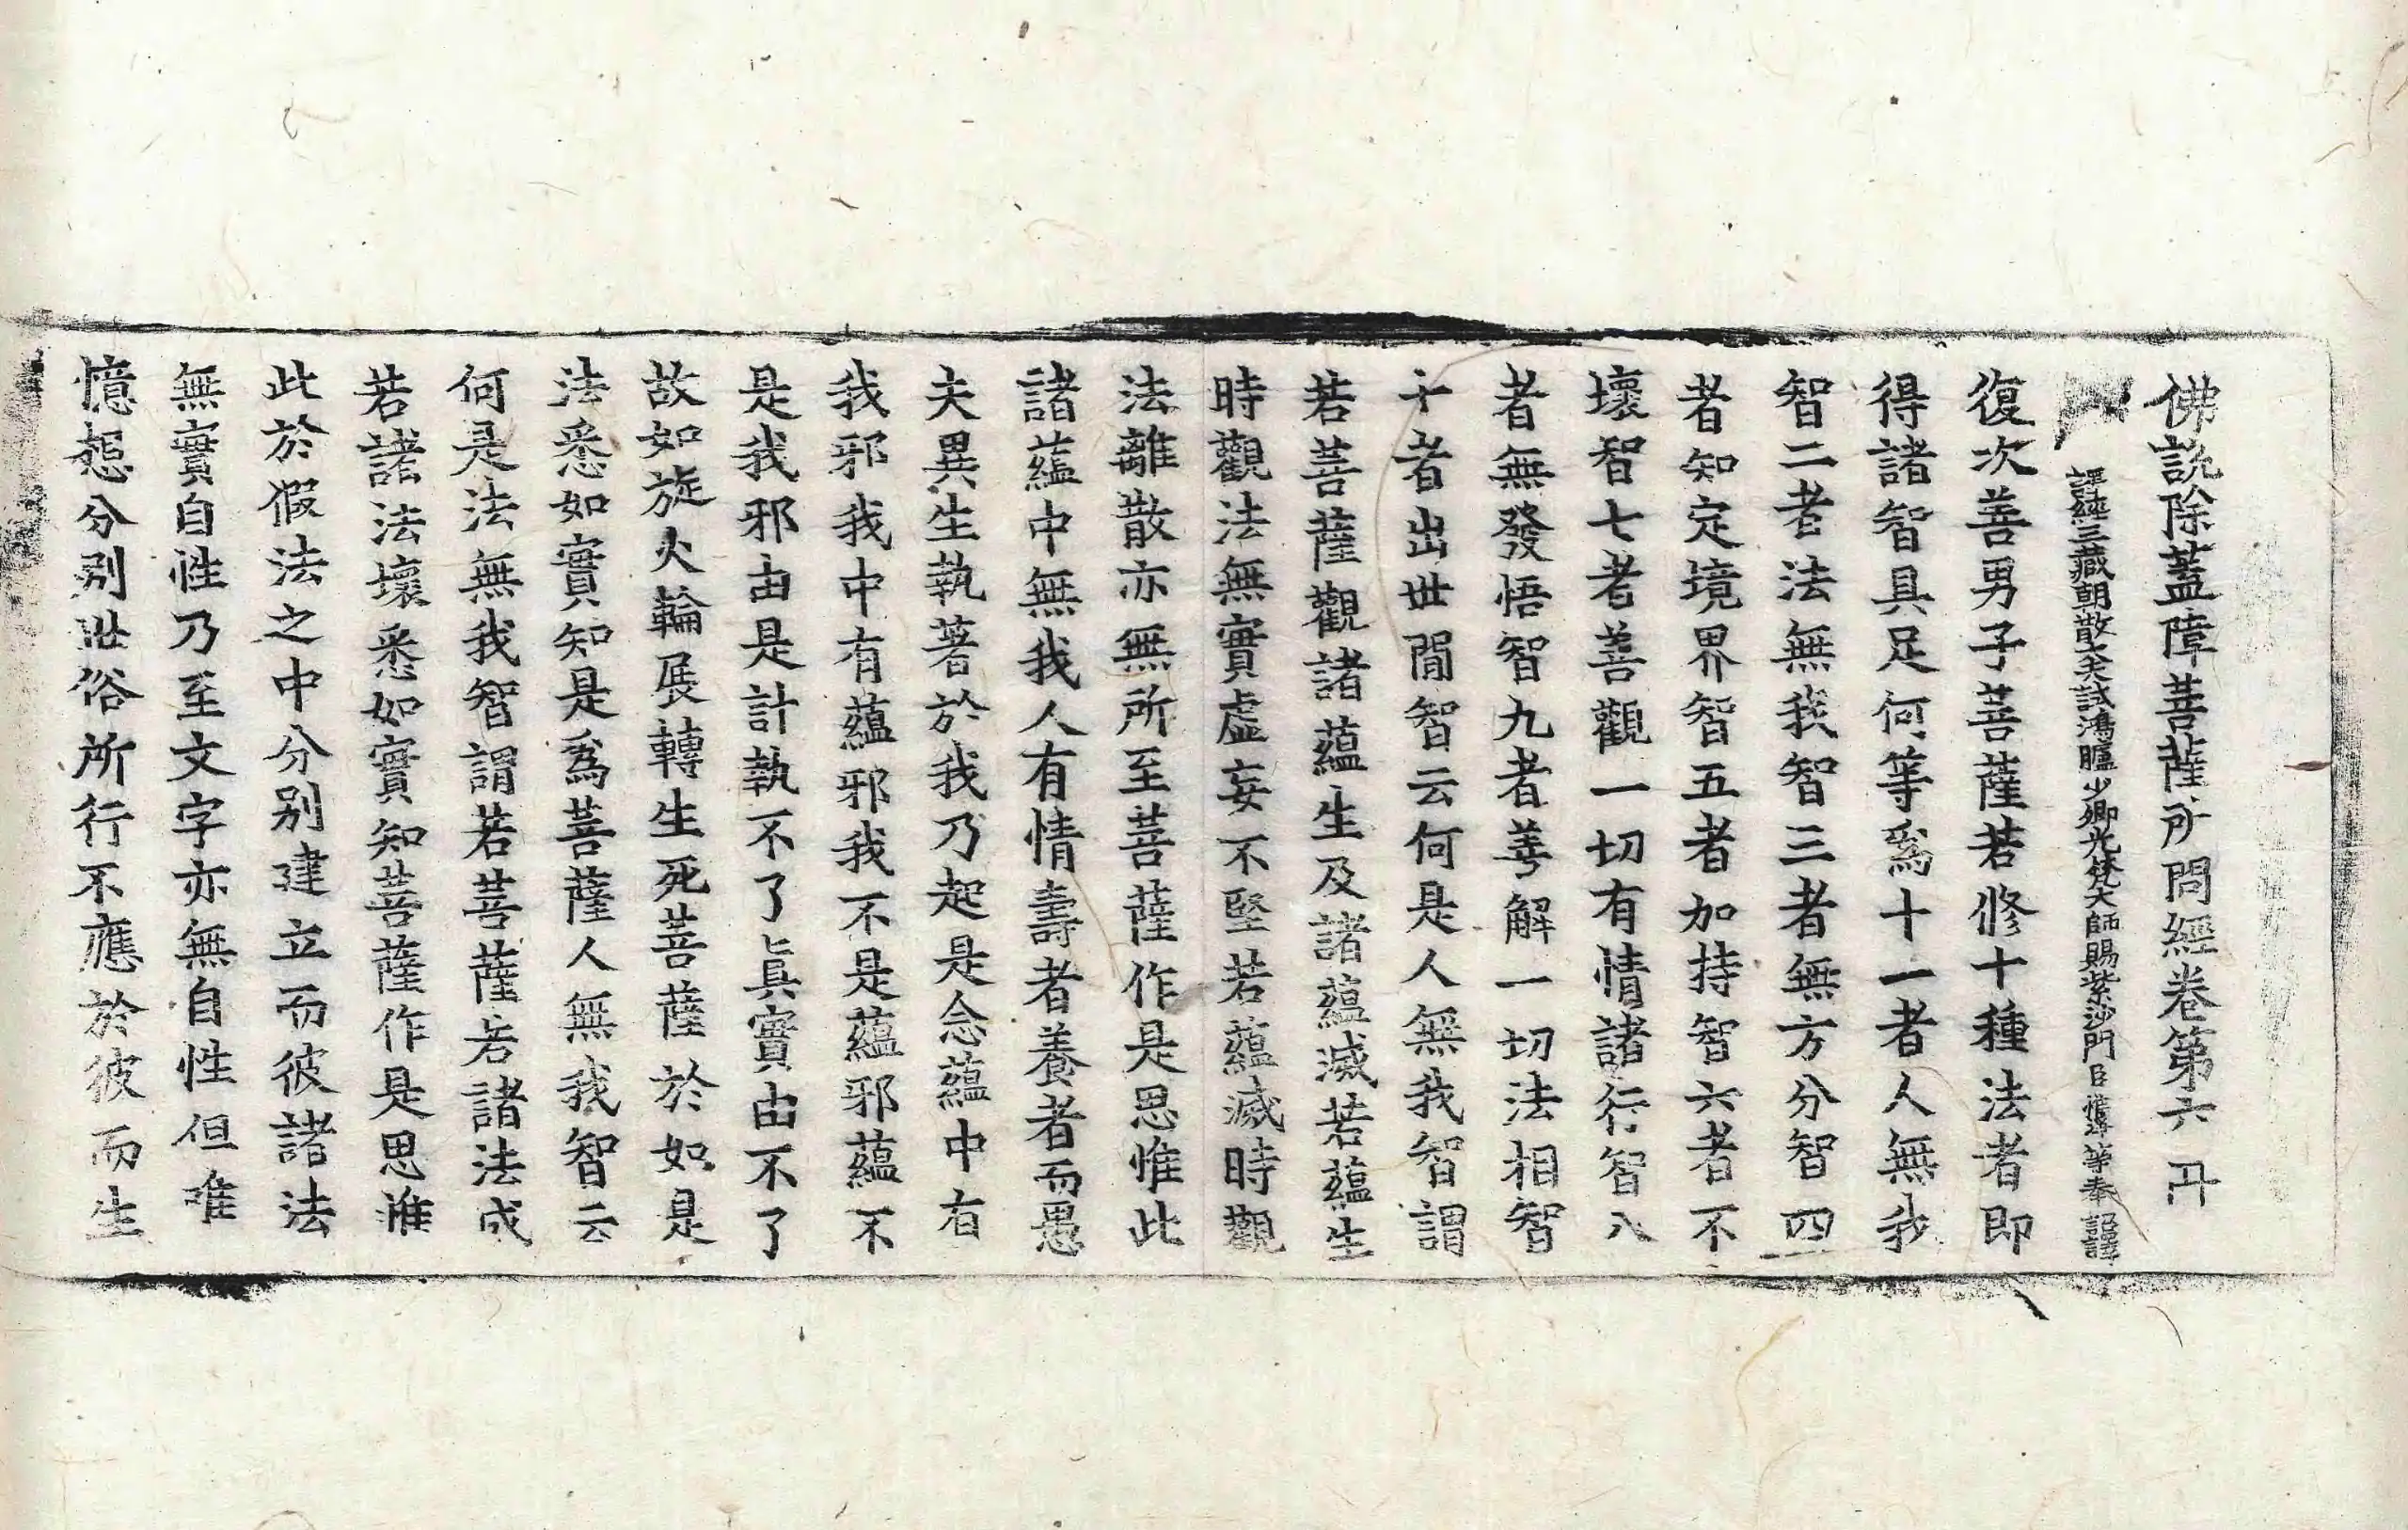 佛說除蓋障菩薩所問經卷第六 冊
譯經三藏朝散大夫試鴻臚少卿光梵大師賜紫沙門臣惟淨等奉 詔譯
復次善男子菩薩若修十種法者即
得諸智具足何等爲十一者人無我
智二者法無我智三者無方分智四
者知定境界智五者加持智六者不
壞智七者善觀一切有情諸行智八
者無發悟智九者善解一切法相智
十者出世閒智云何是人無我智謂
若菩薩觀諸蘊生及諸蘊滅若蘊生
時觀法無實虛妄不堅若蘊滅時觀
法離散亦無所至菩薩作是思惟此
諸蘊中無我人有情壽者養者而愚
夫異生執著於我乃起是念蘊中有
我邪我中有蘊邪我不是蘊邪蘊不
是我邪由是計執不了眞實由不了
故如旋火輪展轉生死菩薩於如是
法悉如實知是爲菩薩人無我智云
何是法無我智謂若菩薩若諸法成
若諸法壞悉如實知菩薩作是思惟
此於假法之中分別建立而彼諸法
無實自性乃至文字亦無自性但唯
憶想分別世俗所行不應於彼而生